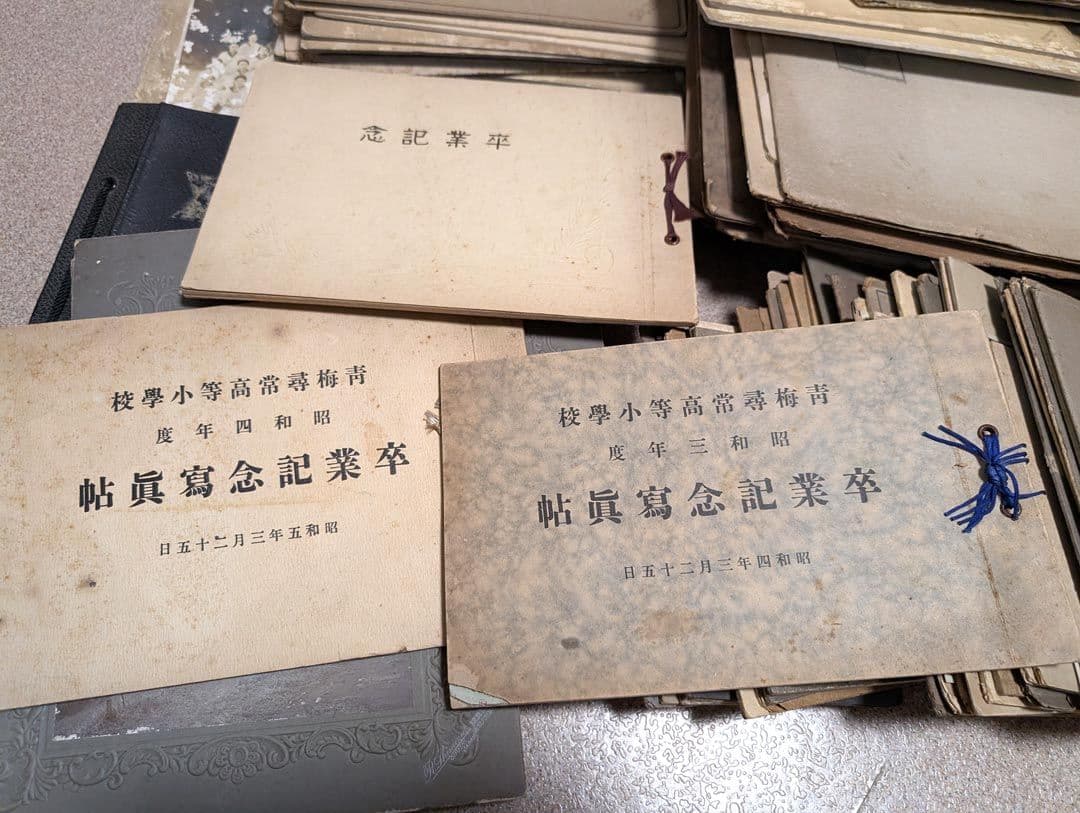 卒業記念
靑梅尋常高等小學校
昭和四年度
卒業記念寫眞帖
昭和五年三月二十五日
靑梅尋常高等小學校
昭和三年度
卒業記念寫眞帖
昭和四年三月二十五日